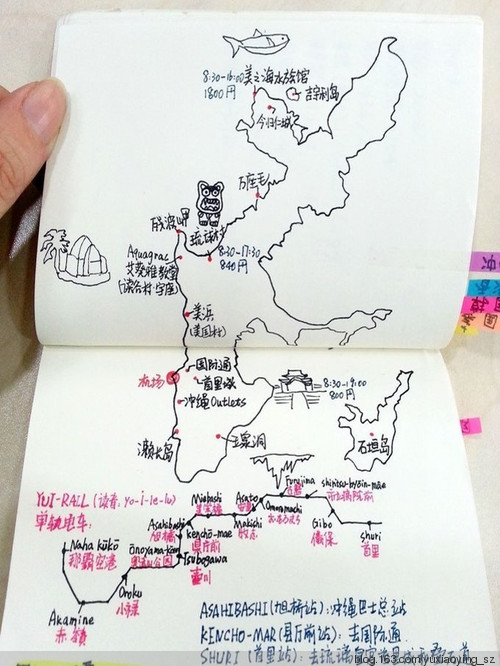 8:30-18:00 美之海水族馆
1800円
古宇利岛
今归仁城
万座毛
残波岬
琉球村
8:30-17:30
840円
Aquagrac
艾葵雅教堂
(读谷村·宇座)
美浜
(美国村)
国际通
机场
首里城
8:30-19:00
800円
冲绳Outlets
石垣岛
濑长岛
玉泉洞
YUI-RAIL (读音: yo-i-le-lu)
单轨电车:
Naha kūkō
那霸空港
Akamine
赤嶺
Oroku
小禄
ōnoyama-kōen
奥武山公园
Tsubogawa
壶川
Asahibashi
旭橋
kenchō-mae
県庁前
Miebashi
美栄橋
Makishi
牧志
Asato
安里
Omoromachi
おもろまち
Furujima
古島
shiritsu-byōin-mae
市立病院前
Gibo
儀保
shuri
首里
ASAHIBASHI (旭橋站): 冲绳巴士总站
KENCHO-MAR (县厅前站): 去国际通
SHURI (首里站):
blog.163.com/yuxiaoying_sz